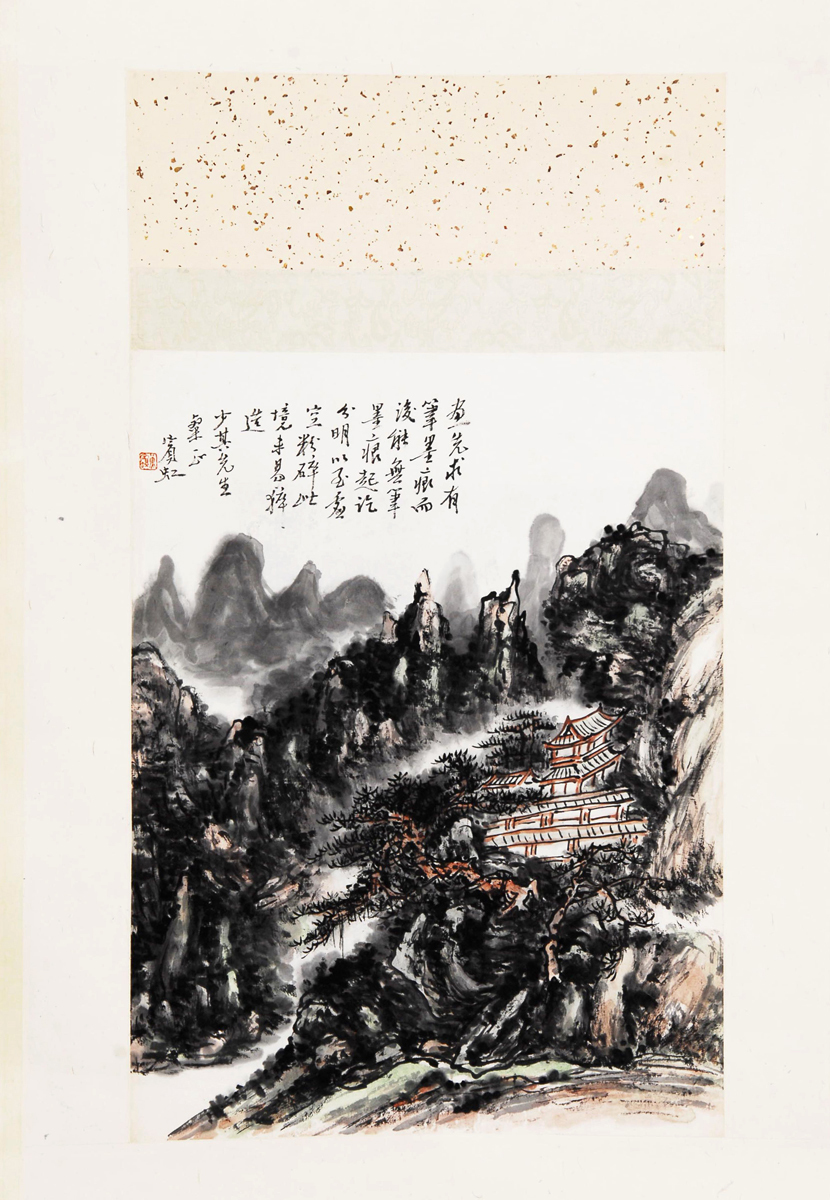 畫先求有
筆墨痕而
後能無筆
墨痕起訖
分明以至虛
空粉碎此
境未易猝
造
少其先生
粲正
賓虹